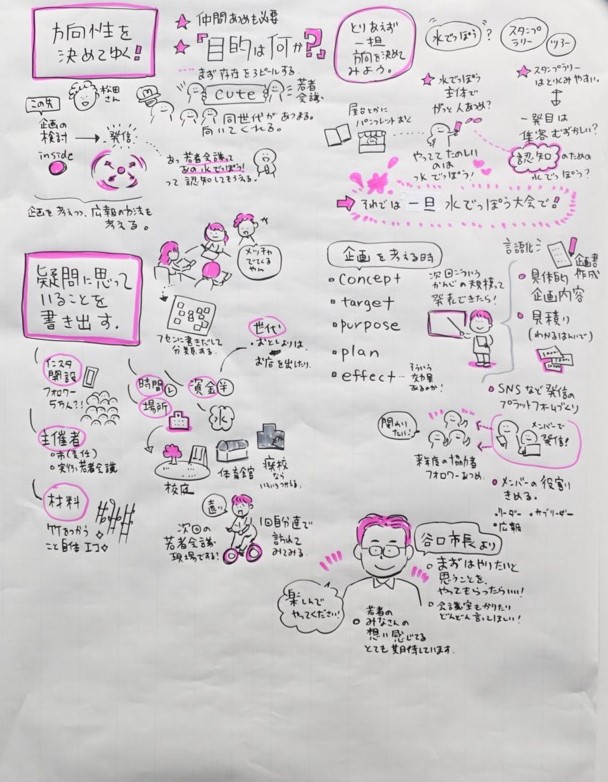 方向性を
決めてゆく!
★ 仲間あつめも必要
★『目的は何か?』
まず存在をアピールする
cute
若者
会議
同世代があつまる。
向いてくれる。
松田
さん
この先
企画の
検討 → 発信
inside
あっ若者会議って
あの水でっぽう!
って認知してもらえる。
企画を考えつつ、広報の方法も
考える。
とりあえず
一担
方向を決めて
みよう。
水でっぽう?
スタンプ
ラリー
ツアー
★ 水でっぽう
主体で
がっと人あつめ?
屋台とかに
パンフレットおく
やってて たのしい
のは
水でっぽう!
★ スタンプラリー
はとりくみやすい。
一発目は
集客むずかしい?
認知のための
水でっぽう?
それでは 一旦 水でっぽう大会で!
疑問に思って
いることを
書き出す。
メッチャ
でてくる
やん
フセンに書きだして
分類する。
インスタ
開設
フォロワー
5わん?!
主催者
・市(責任)
・実行:若者会議
材料
竹をつかう
こと自体エコ
時間
場所
資金 ¥
世代
・おとしよりは、
お店を出したり。
校庭
体育館
廃校
なら
いろいろつかえる。
遠い
次回の
若者会議
現場でする!
1回自分達で
訪れて
みてみる。
企画を考える時
・concept
・target
・purpose
・plan
・effect
そういう
効果
あるのか!
次回こういう
かんじの規模って
発表できたら!
言語化
企画書
作成
・具体的
企画内容
・見積り
(わかるはんいで)
・SNSなど発信の
プラットフォームづくり
関わり
たい!
来年度の協力者
フォロワーあつめ。
メンバーで
発信!
・メンバーの役割り
きめる。
・リーダー ・サブリーダー
・広報
谷口市長より
・まずはやりたいと
思うことを、
やってもらったらいい!
・会議室もかりたり
どんどん言ってほしい!
楽しんで
やってください!
・若者の
みなさんの
想い感じてる
とても期待しています。